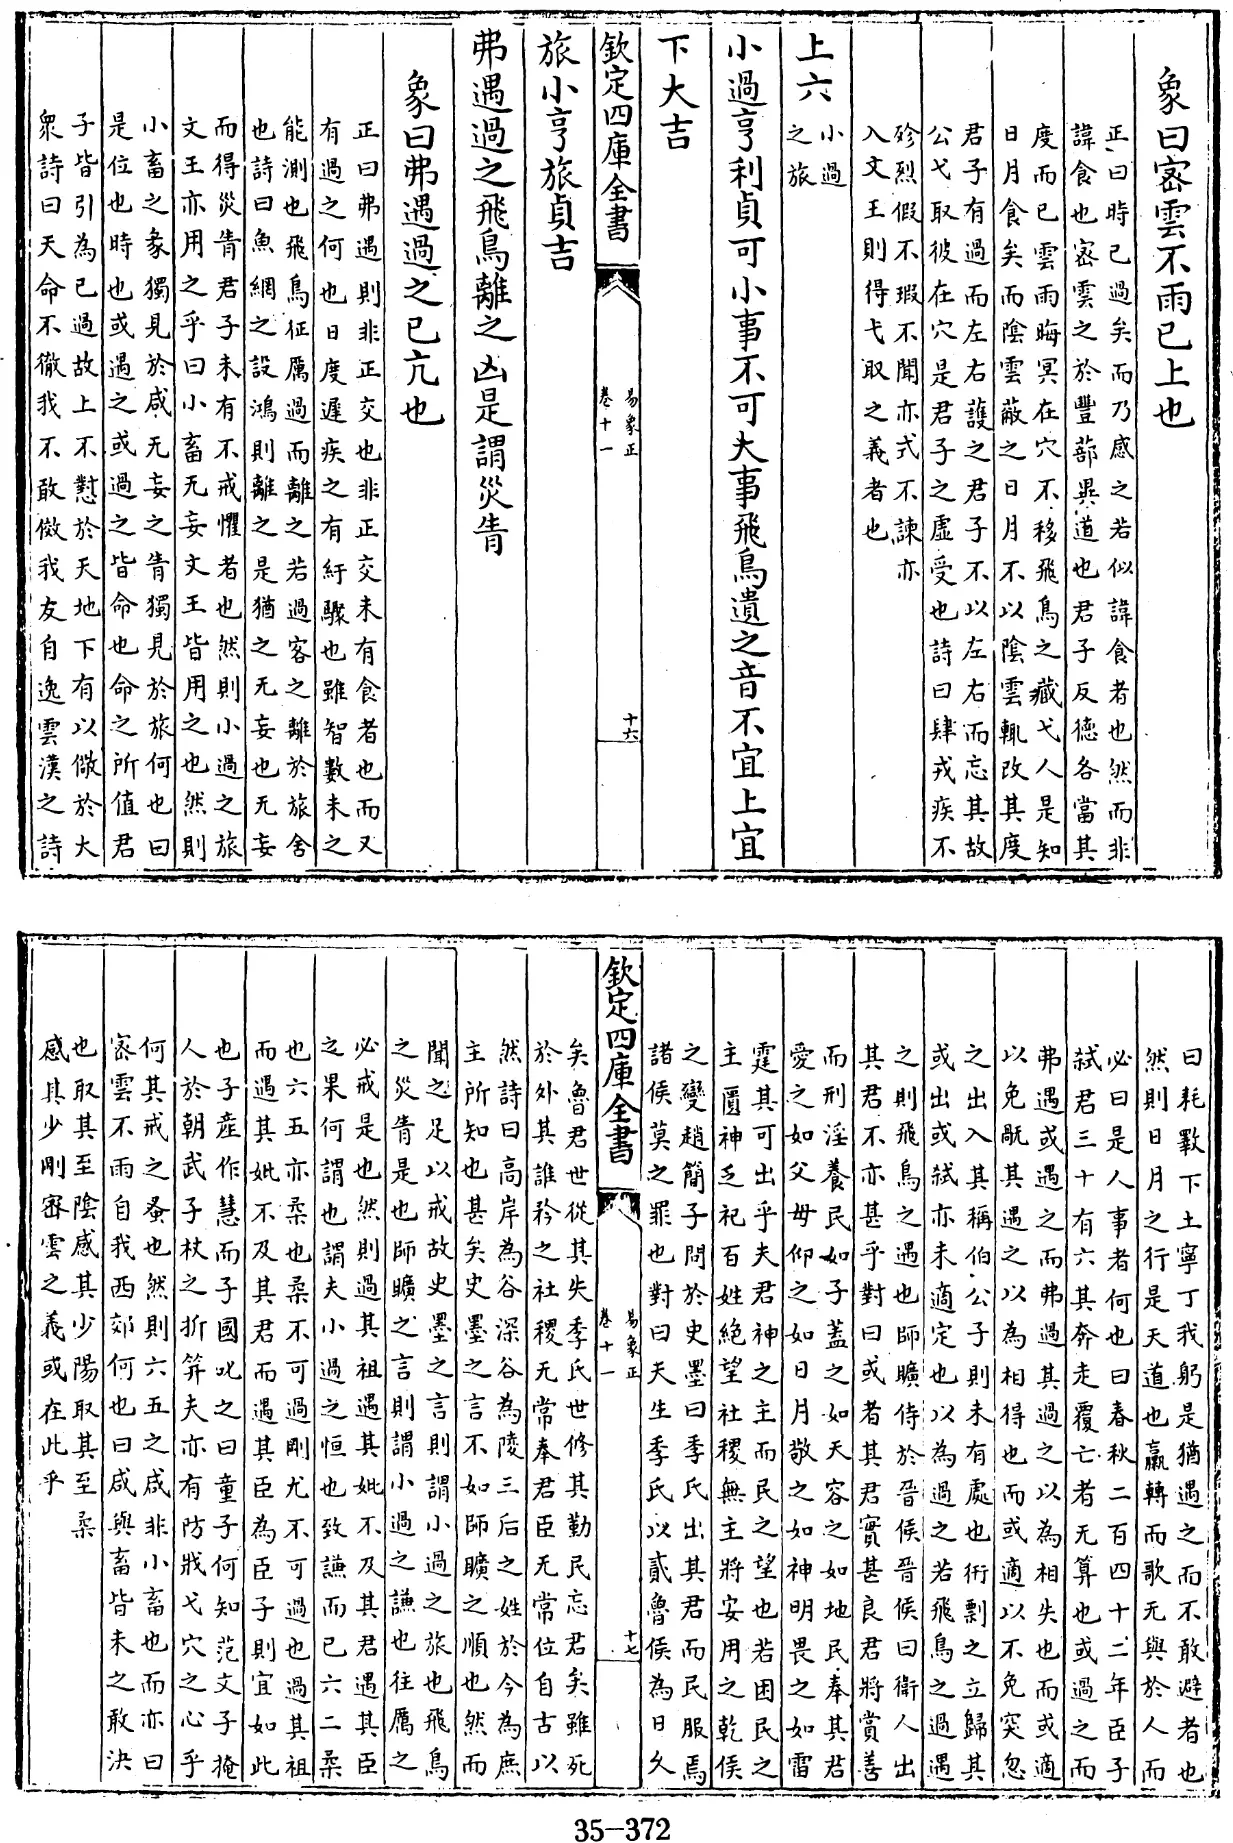 象曰密雲不雨已上也
正曰時已過矣而乃感之若似諱食者也然而非
諱食也密雲之於豐蔀異道也君子反德各當其
度而已雲雨晦冥在穴不移飛鳥之藏弋人是知
日月食矣而陰雲蔽之日月不以陰雲輒改其度
君子有過而左右護之君子不以左右而忘其故
公弋取彼在穴是君子之虛受也詩曰肆戎疾不
殄烈假不瑕不聞亦式不諫亦
入文王則得弋取之義者也
上六
小過
之旅
小過亨利貞可小事不可大事飛鳥遺之音不宜上宜
下大吉
欽定四庫全書
易象正
卷十一
十六
旅小亨旅貞吉
弗遇過之飛鳥離之凶是謂災眚
象曰弗遇過之已亢也
正曰弗遇則非正交也非正交未有食者也而又
有過之何也日度遲疾之有紆驟也雖智數未之
能測也飛鳥征厲過而離之若過客之離於旅舍
也詩曰魚網之設鴻則離之是猶之无妄也无妄
而得災眚君子未有不戒懼者也然則小過之旅
文王亦用之乎曰小畜无妄文王皆用之也然則
小畜之象獨見於咸无妄之眚獨見於旅何也曰
是位也時也或遇之或過之皆命也命之所值君
子皆引為已過故上不懟於天地下有以儆於大
衆詩曰天命不徹我不敢傚我友自逸雲漢之詩
曰耗斁下土寧丁我躬是猶遇之而不敢避者也
然則日月之行是天道也贏轉而歌无與於人而
必曰是人事者何也曰春秋二百四十二年臣子
弒君三十有六其奔走覆亡者无算也或過之而
弗遇或遇之而弗過其過之以為相失也而或適
以免翫其遇之以為相得也而或適以不免突忽
之出入其稱伯公子則未有處也衎剽之立歸其
或出或弒亦未適定也以為過之若飛鳥之過遇
之則飛鳥之遇也師曠侍於晉侯晉侯曰衛人出
其君不亦甚乎對曰或者其君實甚良君將賞善
而刑淫養民如子蓋之如天容之如地民奉其君
愛之如父母仰之如日月敬之如神明畏之如雷
霆其可出乎夫君神之主而民之望也若困民之
主匱神乏祀百姓絕望社稷無主將安用之乾侯
之變趙簡子問於史墨曰季氏出其君而民服焉
諸侯莫之罪也對曰天生季氏以貳魯侯為日久
欽定四庫全書
易象正
卷十一
十七
矣魯君世從其失季氏世修其勤民忘君矣雖死
於外其誰矜之社稷无常奉君臣无常位自古以
然詩曰高岸為谷深谷為陵三后之姓於今為庶
主所知也甚矣史墨之言不如師曠之順也然而
聞之足以戒故史墨之言則謂小過之旅也飛鳥
之災眚是也師曠之言則謂小過之謙也往厲之
必戒是也然則過其祖遇其妣不及其君遇其臣
之果何謂也謂夫小過之恒也致謙而已六二柔
也六五亦柔也柔不可過剛尤不可過也過其祖
而遇其妣不及其君而遇其臣為臣子則宜如此
也子產作慧而子國叱之曰童子何知范文子掩
人於朝武子杖之折笄夫亦有防戕弋穴之心乎
何其戒之蚤也然則六五之咸非小畜也而亦曰
密雲不雨自我西郊何也曰咸與畜皆未之敢決
也取其至陰感其少陽取其至柔
感其少剛密雲之義或在此乎
35-372